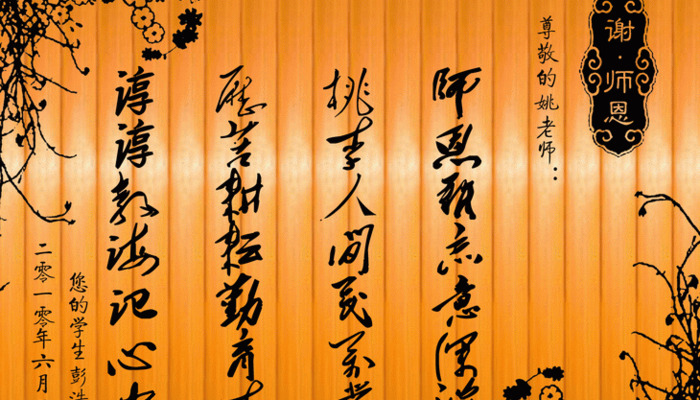 谢·师恩
尊敬的姚老师：
师恩难忘意深
桃李人间茂万
历苦耕耘勤育
谆谆教诲记心
您的学生 彭浩
二零一零年六月